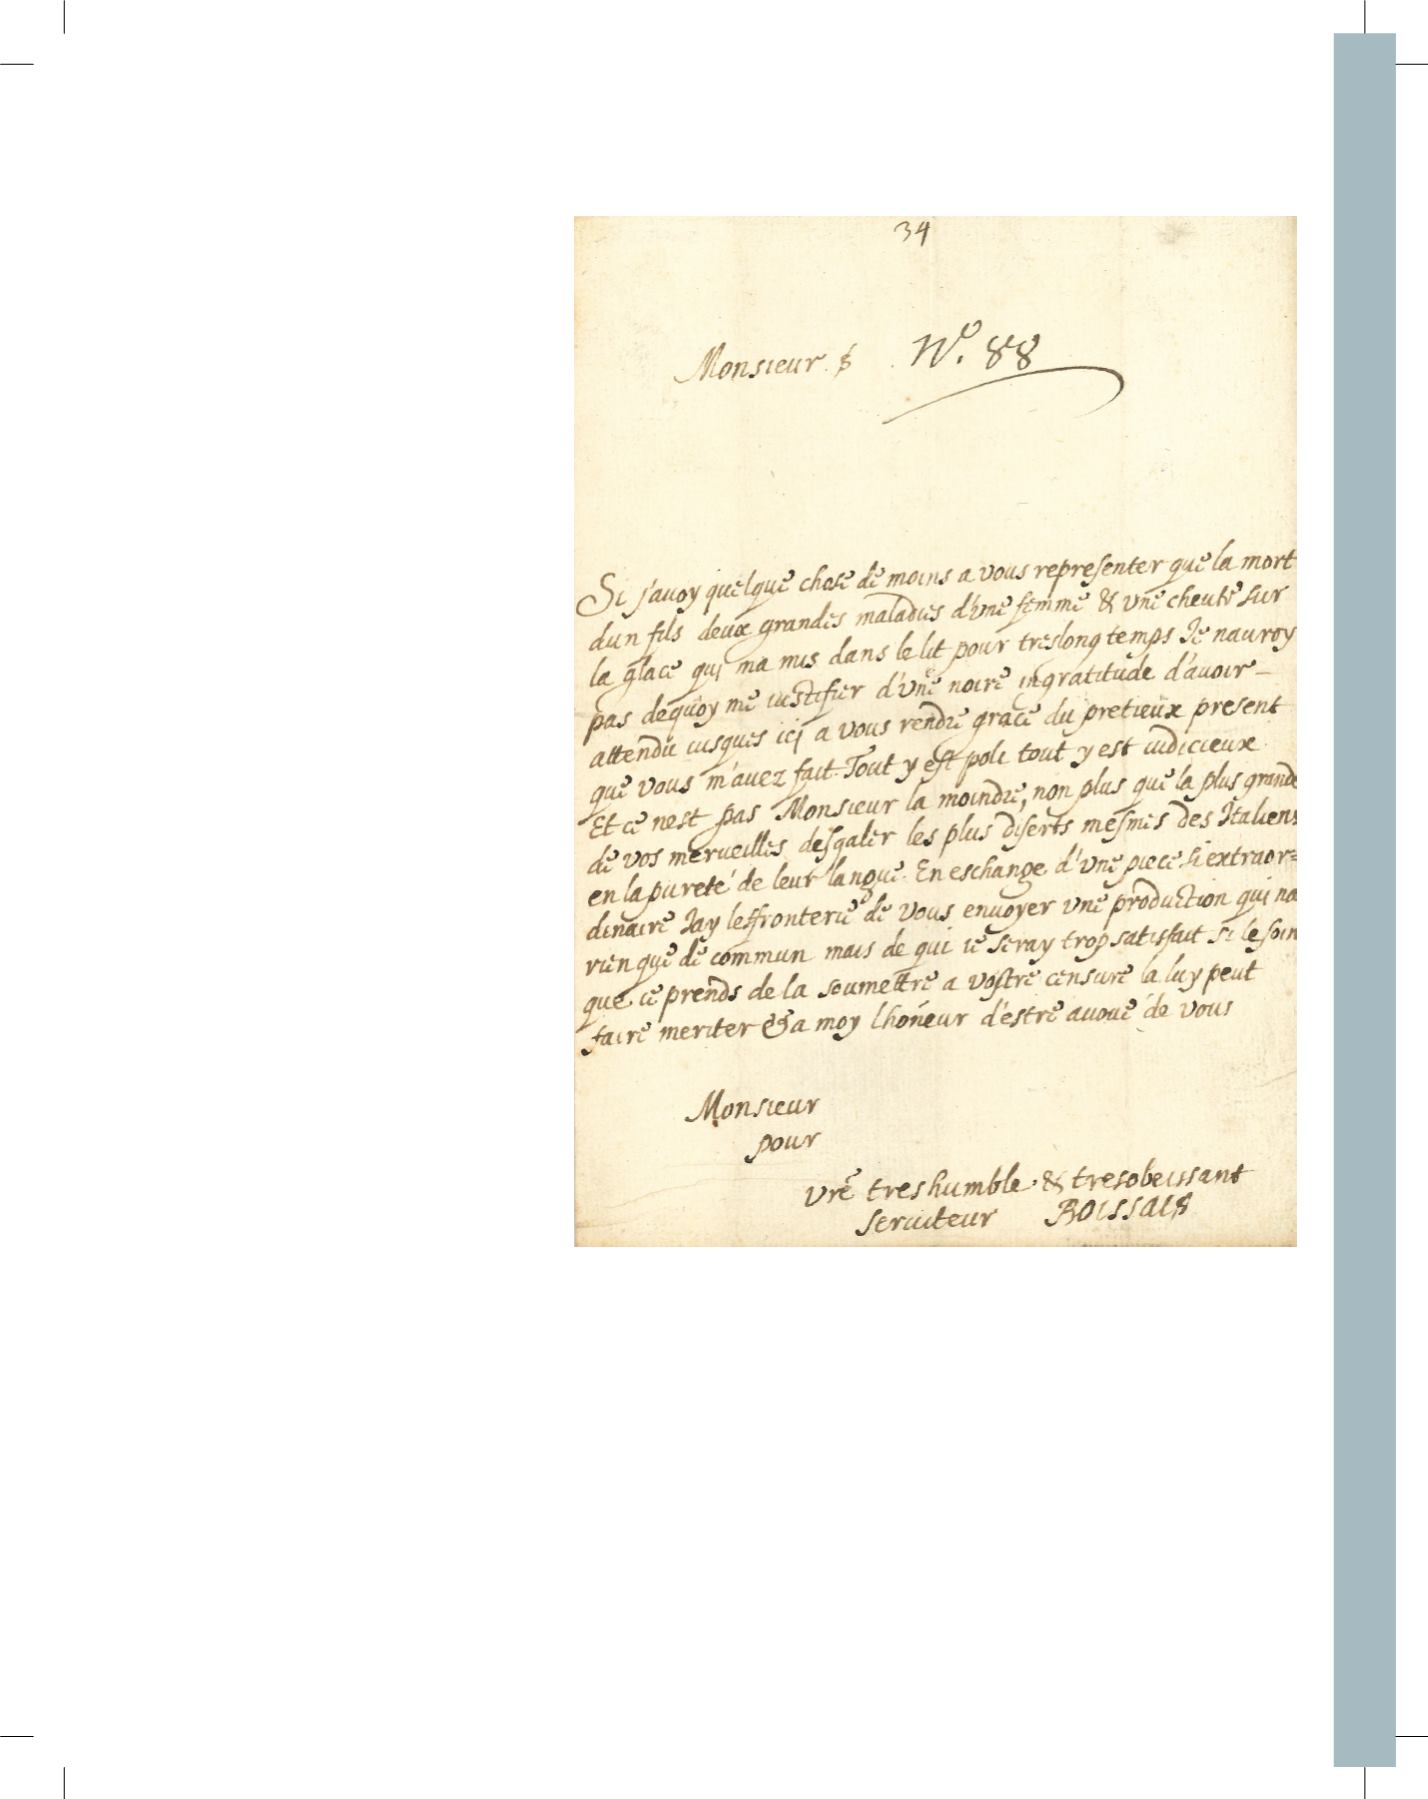 34
Monsieur N.º 88
Si j'auoy quelque chose de moins a vous representer que la mort
dun fils deux grandes maladies d'vne femme & vne cheute sur
la glace qui ma mis dans le lit pour treslong temps Je nauroy
pas dequoy me iustifier d'vne noire ingratitude d'auoir
attendu iusques ici a vous rendre grace du pretieux present
que vous m'auez fait. Tout y est poli tout y est iudicieux
Et ce nest pas Monsieur la moindre, non plus que la plus grande
de vos merueilles desgaler les plus diserts mesmes des Italiens
en la pureté de leur langue. En eschange d'vne piece si extraor=
dinaire Jay leffronterie de vous enuoyer vne production qui na
rien que de commun mais de qui ie seray trop satisfait si le soin
que ie prends de la soumettre a vostre censure la luy peut
faire meriter & a moy lhoneur d'estre auoué de vous
Monsieur
pour
vre treshumble & tresobeissant
seruiteur BOISSAIS